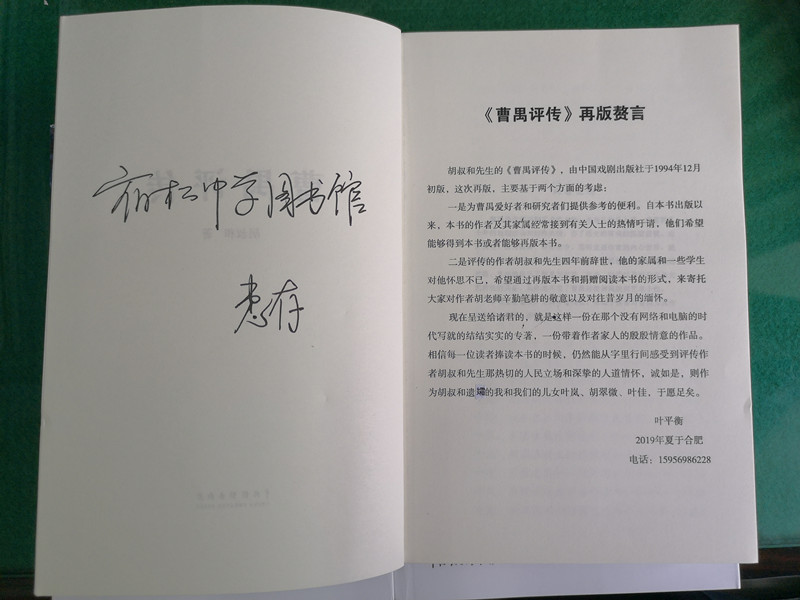 宿松中学图书馆
惠存
《曹禺评传》再版赘言
胡叔和先生的《曹禺评传》，由中国戏剧出版社于1994年12月
初版，这次再版，主要基于两个方面的考虑：
一是为曹禺爱好者和研究者们提供参考的便利。自本书出版以
来，本书的作者及其家属经常接到有关人士的热情吁请，他们希望
能够得到本书或者能够再版本书。
二是评传的作者胡叔和先生四年前辞世，他的家属和一些学生
对他怀思不已，希望通过再版本书和捐赠阅读本书的形式，来寄托
大家对作者胡老师辛勤笔耕的敬意以及对往昔岁月的缅怀。
现在呈送给诸君的，就是这样一份在那个没有网络和电脑的时
代写就的结结实实的专著，一份带着作者家人的殷殷情意的作品。
相信每一位读者捧读本书的时候，仍然能从字里行间感受到评传作
者胡叔和先生那热切的人民立场和深挚的人道情怀，诚如是，则作
为胡叔和遗孀的我和我们的儿女叶岚、胡翠微、叶佳，于愿足矣。
叶平衡
2019年夏于合肥
电话：15956986228